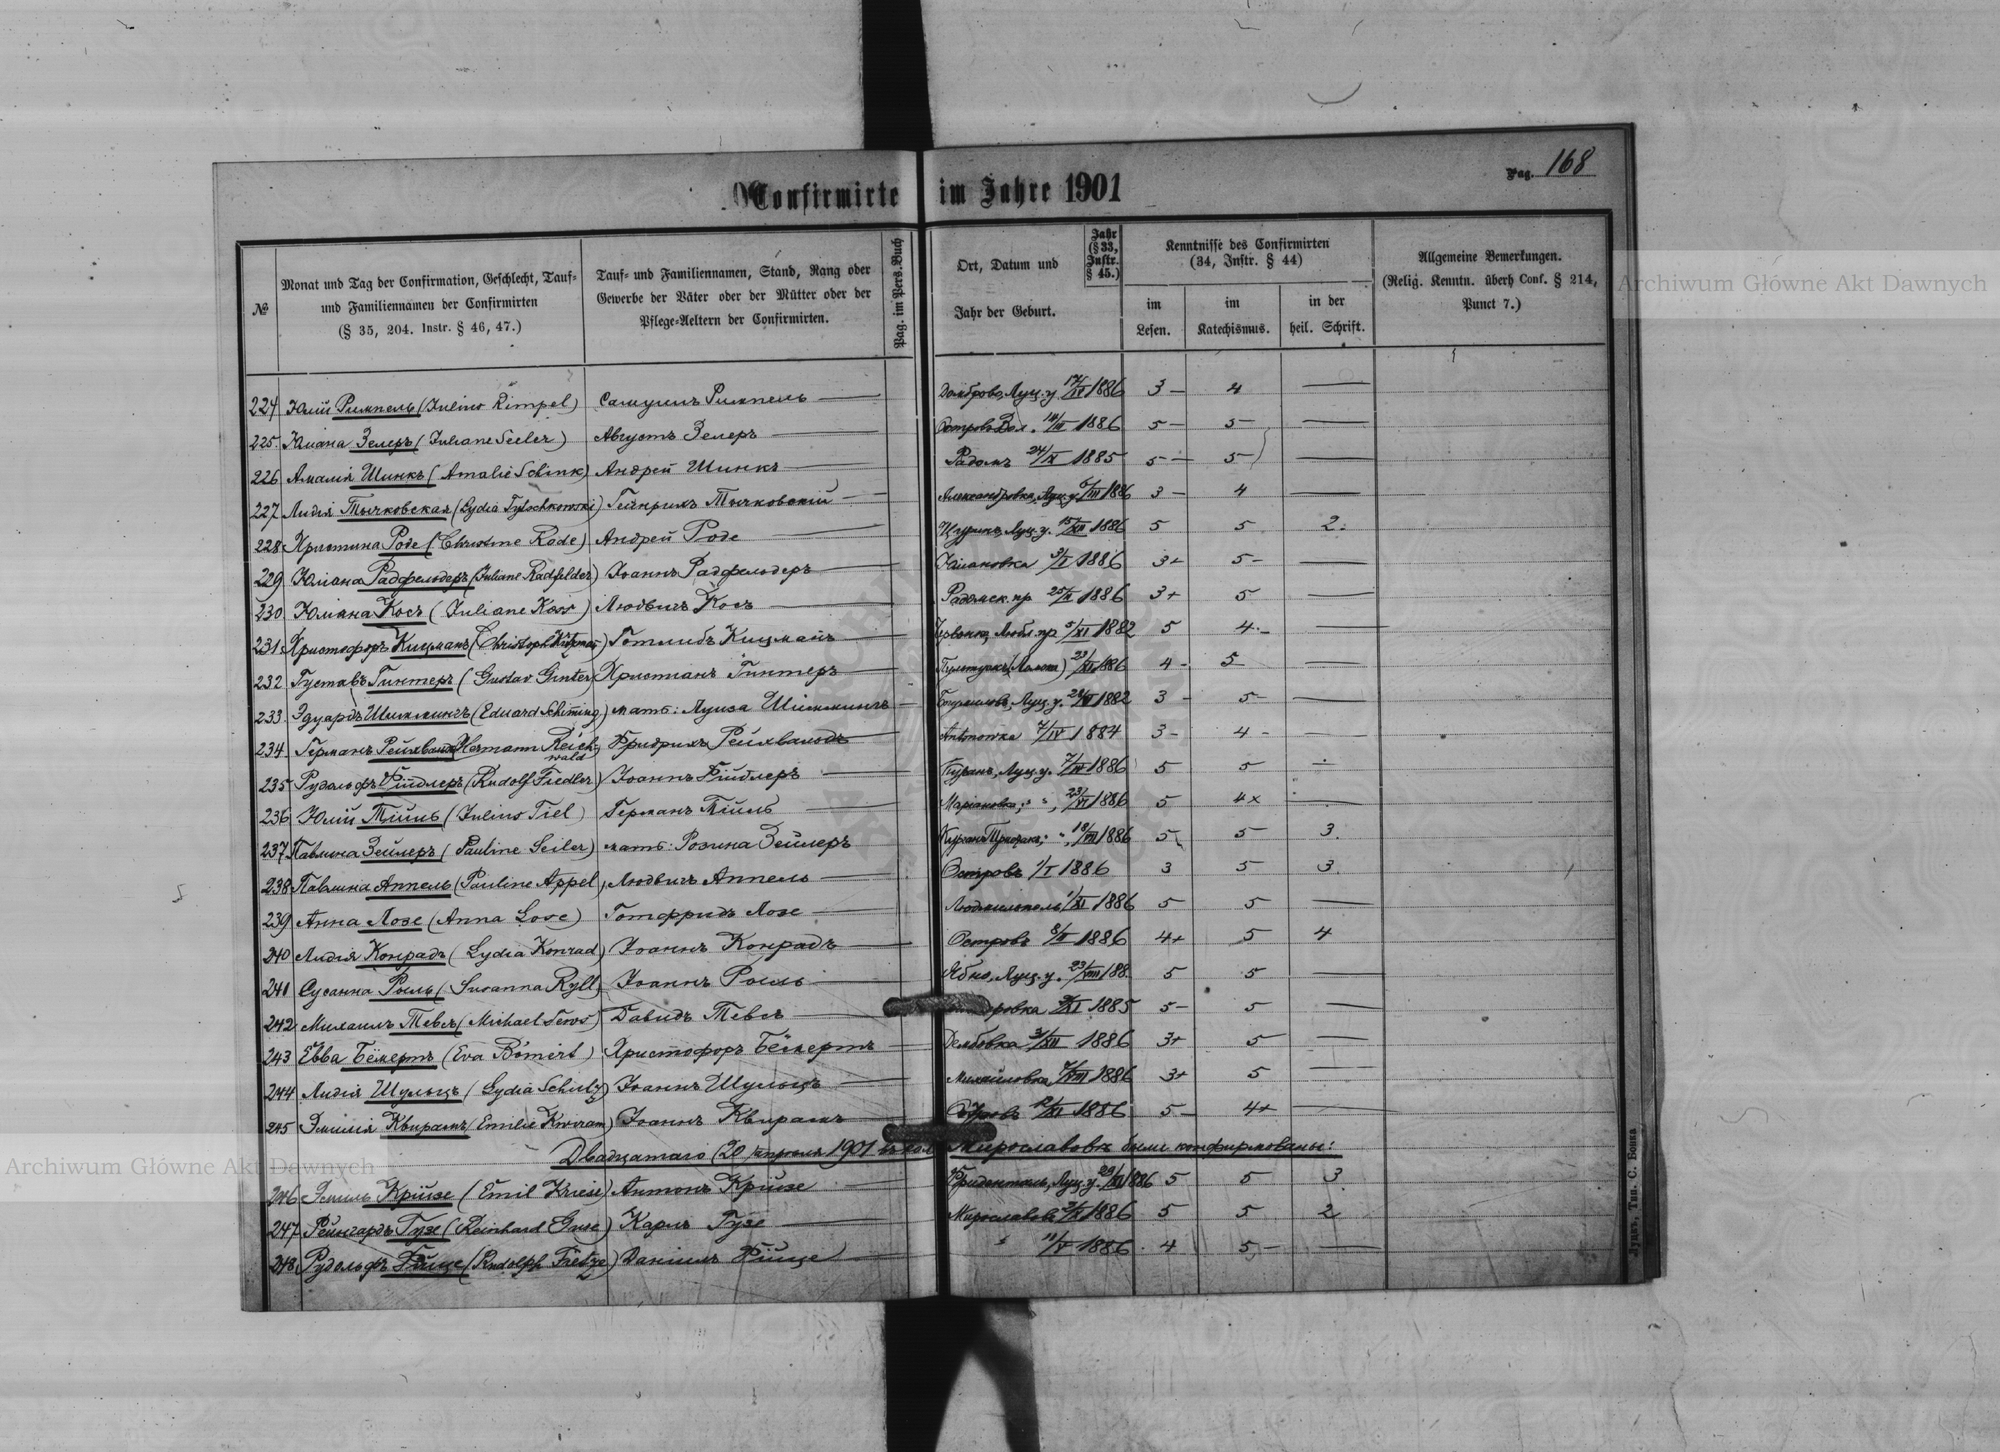 Pag. 168
Confirmirte im Jahre 1901
№
Monat und Tag der Confirmation, Geschlecht, Tauf- und Familiennamen der Confirmirten
(§ 35, 204. Instr. § 46, 47.)
Tauf- und Familiennamen, Stand, Rang oder Gewerbe der Väter oder der Mütter oder der Pflege-Aeltern der Confirmirten.
Pag. im Pers. Buch
Ort, Datum und Jahr der Geburt.
Jahr (§ 33, Instr. § 45.)
Kenntnisse des Confirmirten
(34, Instr. § 44)
im Lesen.
im Katechismus.
in der heil. Schrift.
Allgemeine Bemerkungen.
(Relig. Kenntn. überh Conf. § 214, Punct 7.)
224 Юлій Римпель (Julius Rimpel) Самуилъ Римпель Домброва, Луц. у. 17/IV 1886 3 – 4 —
225. Юліана Зелеръ (Juliane Seeler) Августъ Зелеръ 1886 5 – 5 – —
226 Амалія Шинкъ (Amalie Schink) Андрей Шинкъ Радомъ 24/ 1885 5 – 5 – —
227 Лидія Тычковская (Lydia Tytschkowski) Гейнрихъ Тычковскій Александровка, Луц. у. 6/III 1886 3 – 4 —
228 Христина Роде (Christine Rode) Андрей Роде Луц. у. 1886 5 5 2.
229 Юліана Радфельдеръ (Juliane Radfelder) Іоаннъ Радфельдеръ 1886 3+ 5 – —
230 Юліана Косъ (Juliane Koss) Людвигъ Косъ Радомск. пр 25/ 1886 3+ 5 —
231 Христофоръ Кицманъ (Christoph Kitzman) Готлибъ Кицманъ Любл. пр 5/XI 1882 5 4 – —
232 Густавъ Гинтеръ (Gustav Ginter) Христіанъ Гинтеръ 1886 4 – 5 —
233 Эдуардъ Шиммингъ (Eduard Schiming) мать: Луиза Шиммингъ Луц. у. 1882 3 – 5 – —
234 Германъ Рейхвальдъ (Hermann Reichwald) Фридрихъ Рейхвальдъ Antonowka 7/IV 1884 3 – 4 – —
235 Рудольфъ Фидлеръ (Rudolf Fiedler) Іоаннъ Фидлеръ Луц. у. 1886 5 5 —
236 Юлій Тиль (Julius Tiel) Германъ Тиль Маріановка, " ", 23/VI 1886 5 4× —
237 Павлина Зейлеръ (Pauline Seiler) мать: Розина Зейлеръ 18/VIII 1886 5 5 3.
238 Павлина Аппель (Pauline Appel) Людвигъ Аппель Островъ 1/I 1886 3 5 3.
239 Анна Лозе (Anna Lose) Готфридъ Лозе Людмильполь 1/XI 1886 5 5 —
240 Лидія Конрадъ (Lydia Konrad) Іоаннъ Конрадъ Островъ 1886 4+ 5 4
241 Сусанна Рыль (Susanna Ryll) Іоаннъ Рыль Луц. у. 23/VIII 188 5 5 —
242 Михаилъ Тевсъ (Michael Tews) Давидъ Тевсъ 1885 5 – 5 —
243 Евва Бёмертъ (Eva Bömert) Христофоръ Бёмертъ Дембовка 3/XII 1886 3+ 5 —
244 Лидія Шульцъ (Lydia Schulz) Іоаннъ Шульцъ Михайловка 7/VIII 1886 3+ 5 —
245 Эмилія Квирамъ (Emilie Kwiram) Іоаннъ Квирамъ 12/XI 1886 5 – 4+ —
Двадцатаго (20) апрѣля 1901 въ кол. Мирославовкѣ были конфирмованы:
246 Эмиль Кризе (Emil Kriese) Антонъ Кризе Фриденталь, Луц. у. 1886 5 5 3
247 Рейнгардъ Гузе (Reinhard Guse) Карлъ Гузе Мирославовка 1886 5 5 2
248 Рудольфъ Фице (Rudolph Fietze) Даніилъ Фице " 11/V 1886 4 5 – —
Луцкъ, Тип. С. Бонка
Archiwum Główne Akt Dawnych
Archiwum Główne Akt Dawnych